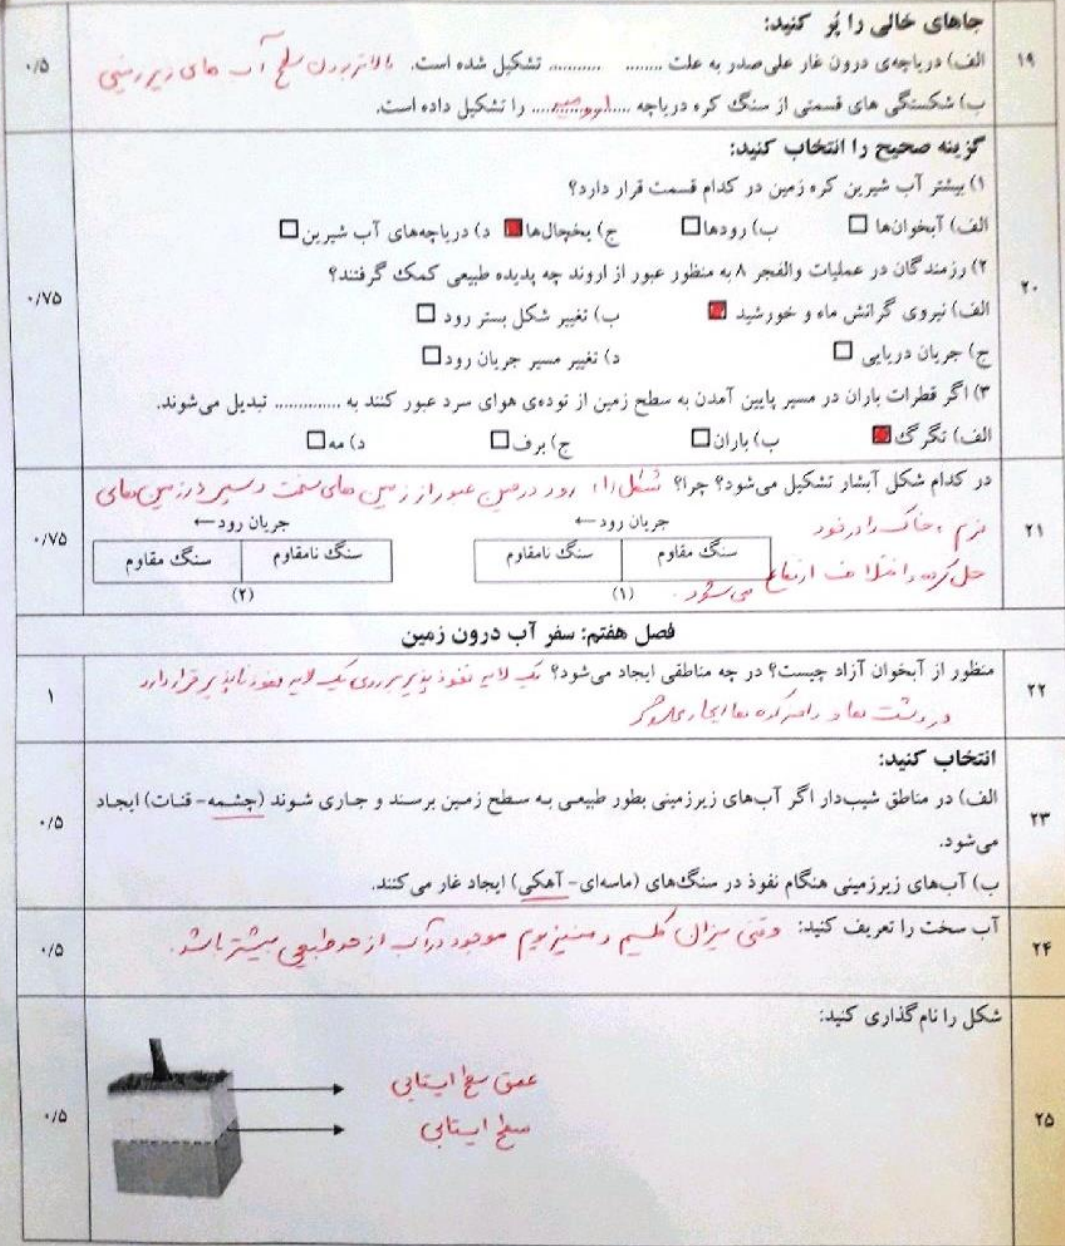 ۱۹
جاهای خالی را پُر کنید:
الف) دریاچه‌ی درون غار علی‌صدر به علت ........ ........... تشکیل شده است. بالاتر بودن سطح آب های زیرزمینی
۰/۵
ب) شکستگی های قسمتی از سنگ کره دریاچه .....ارومیه..... را تشکیل داده است.
۲۰
گزینه صحیح را انتخاب کنید:
۱) بیشتر آب شیرین کره زمین در کدام قسمت قرار دارد؟
الف) آبخوان‌ها □ ب) رودها □ ج) یخچال‌ها ■ د) دریاچه‌های آب شیرین □
۲) رزمندگان در عملیات والفجر ۸ به منظور عبور از اروند چه پدیده طبیعی کمک گرفتند؟
۰/۷۵
الف) نیروی گرانش ماه و خورشید ■ ب) تغییر شکل بستر رود □
ج) جریان دریایی □ د) تغییر مسیر جریان رود □
۳) اگر قطرات باران در مسیر پایین آمدن به سطح زمین از توده‌ی هوای سرد عبور کنند به .............. تبدیل می‌شوند.
الف) تگرگ ■ ب) باران □ ج) برف □ د) مه □
۲۱
در کدام شکل آبشار تشکیل می‌شود؟ چرا؟ شکل (۱) رود در حین عبور از زمین های سخت و سپس در زمین های
نرم، خاک را در خود
حل کرده و اختلاف ارتفاع می شود.
۰/۷۵
جریان رود← جریان رود←
سنگ مقاوم سنگ نامقاوم سنگ نامقاوم سنگ مقاوم
(۱) (۲)
فصل هفتم: سفر آب درون زمین
۲۲
منظور از آبخوان آزاد چیست؟ در چه مناطقی ایجاد می‌شود؟ یک لایه نفوذ پذیر بر روی یک لایه نفوذ ناپذیر قرار دارد
در دشت ها و دامنه کوه ها ایجاد می شود
۱
۲۳
انتخاب کنید:
الف) در مناطق شیب‌دار اگر آب‌های زیرزمینی بطور طبیعی به سطح زمین برسند و جاری شوند (چشمه- قنات) ایجاد
می‌شود.
۰/۵
ب) آب‌های زیرزمینی هنگام نفوذ در سنگ‌های (ماسه‌ای- آهکی) ایجاد غار می‌کنند.
۲۴
آب سخت را تعریف کنید: وقتی میزان کلسیم و منیزیوم موجود در آب از حد طبیعی بیشتر باشد.
۰/۵
۲۵
شکل را نام گذاری کنید:
عمق سطح ایستابی
سطح ایستابی
۰/۵